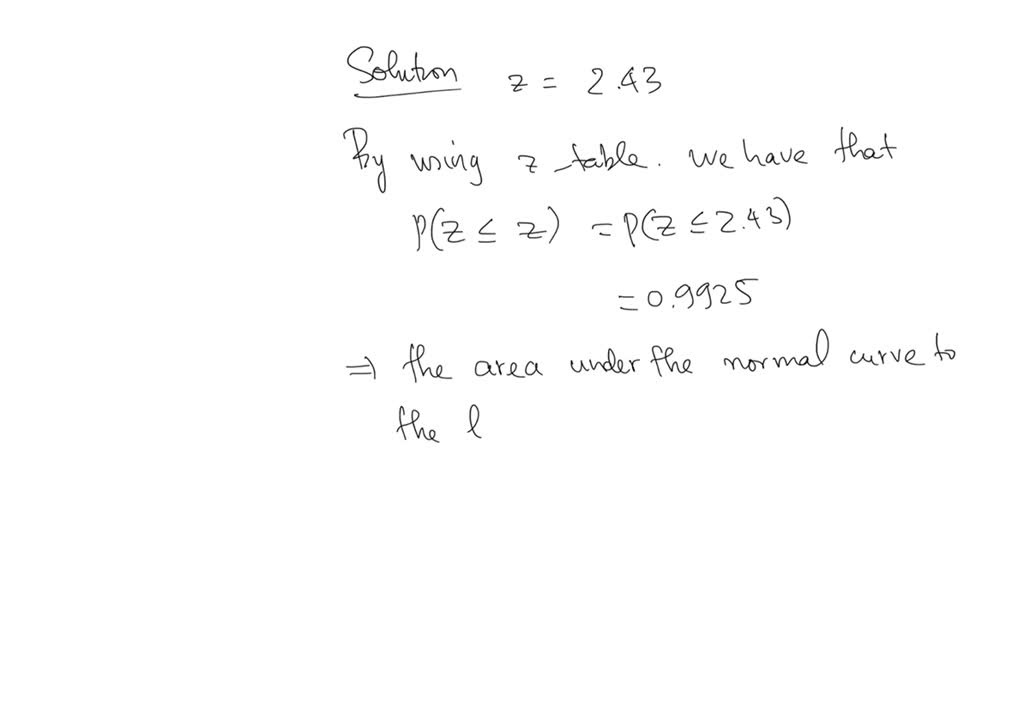 Solution z = 2.43
By using z-table. we have that
P(Z ≤ z) = P(Z ≤ 2.43)
= 0.9925
⇒ the area under the normal curve to
the l